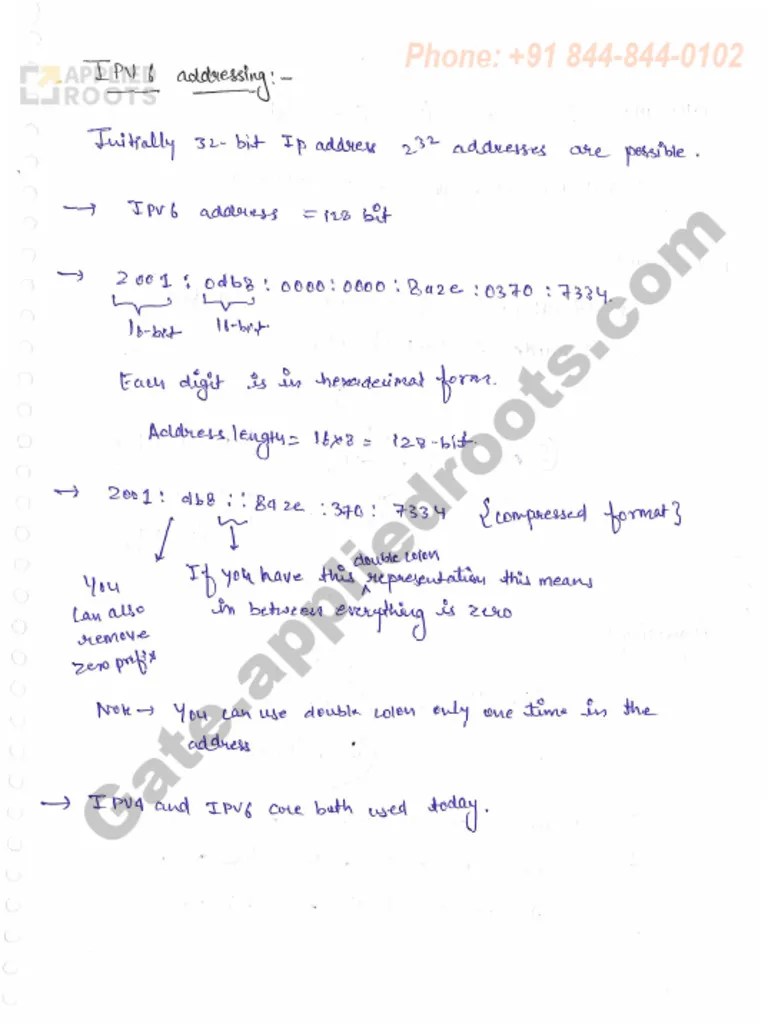 Phone: +91 844-844-0102
APPLIED
ROOTS
IPV6 addressing:-
Initially 32-bit Ip address 2^32 addresses are possible.
→ IPV6 address = 128 bit
→ 2001 : 0db8 : 0000 : 0000 : 8a2e : 0370 : 7334.
16-bit 16-bit
Each digit is in hexadecimal form.
Address length = 16x8 = 128-bit.
→ 2001 : db8 :: 8a2e : 370 : 7334 {compressed format}
double colon
You If you have this ^ representation this means
can also in between everything is zero
remove
zero prefix
Note → You can use double colon only one time in the
address
→ IPV4 and IPV6 are both used today.
Gate.appliedroots.com